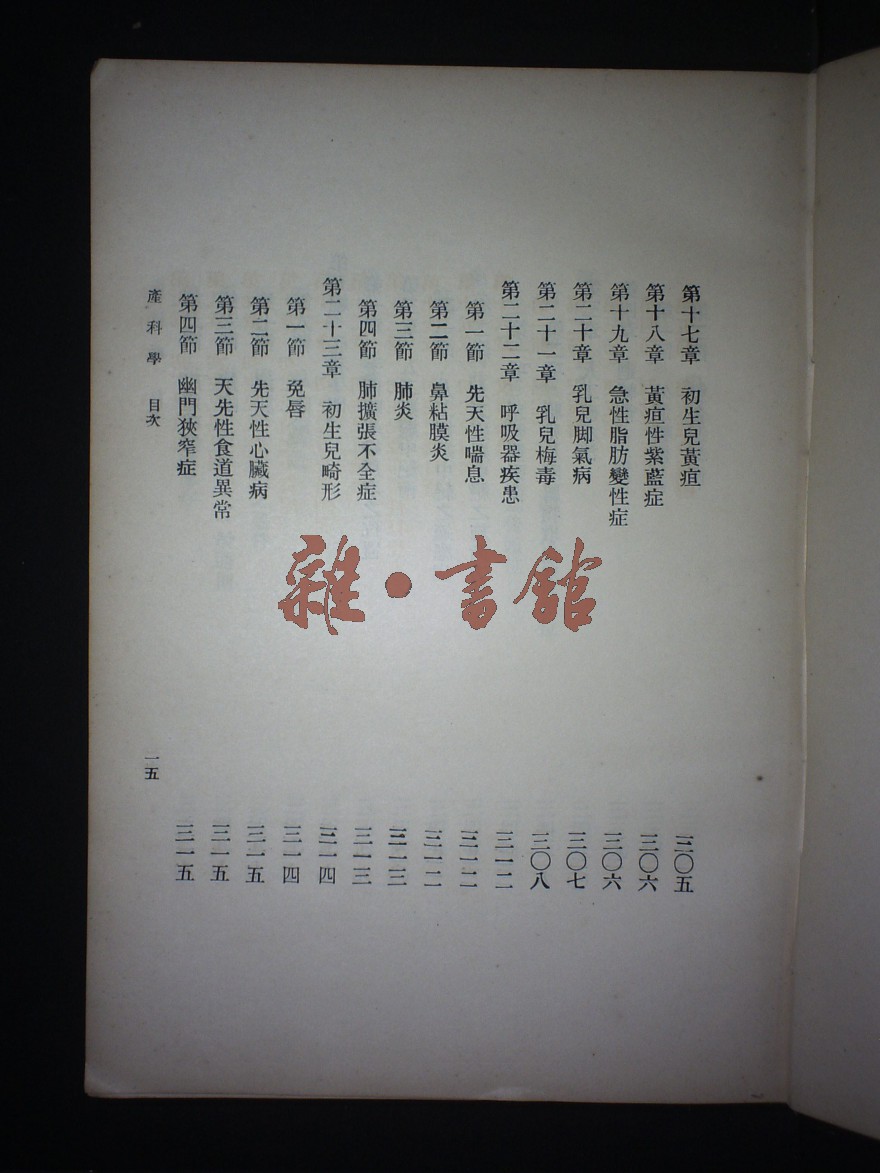 第十七章　初生兒黃疸　三〇五
第十八章　黃疸性紫藍症　三〇六
第十九章　急性脂肪變性症　三〇六
第二十章　乳兒脚氣病　三〇七
第二十一章　乳兒梅毒　三〇八
第二十二章　呼吸器疾患　三一二
第一節　先天性喘息　三一二
第二節　鼻粘膜炎　三一二
第三節　肺炎　三一三
第四節　肺擴張不全症　三一三
第二十三章　初生兒畸形　三一四
第一節　兔唇　三一四
第二節　先天性心臟病　三一五
第三節　天先性食道異常　三一五
第四節　幽門狹窄症　三一五
產科學　目次　一五
雜·書館